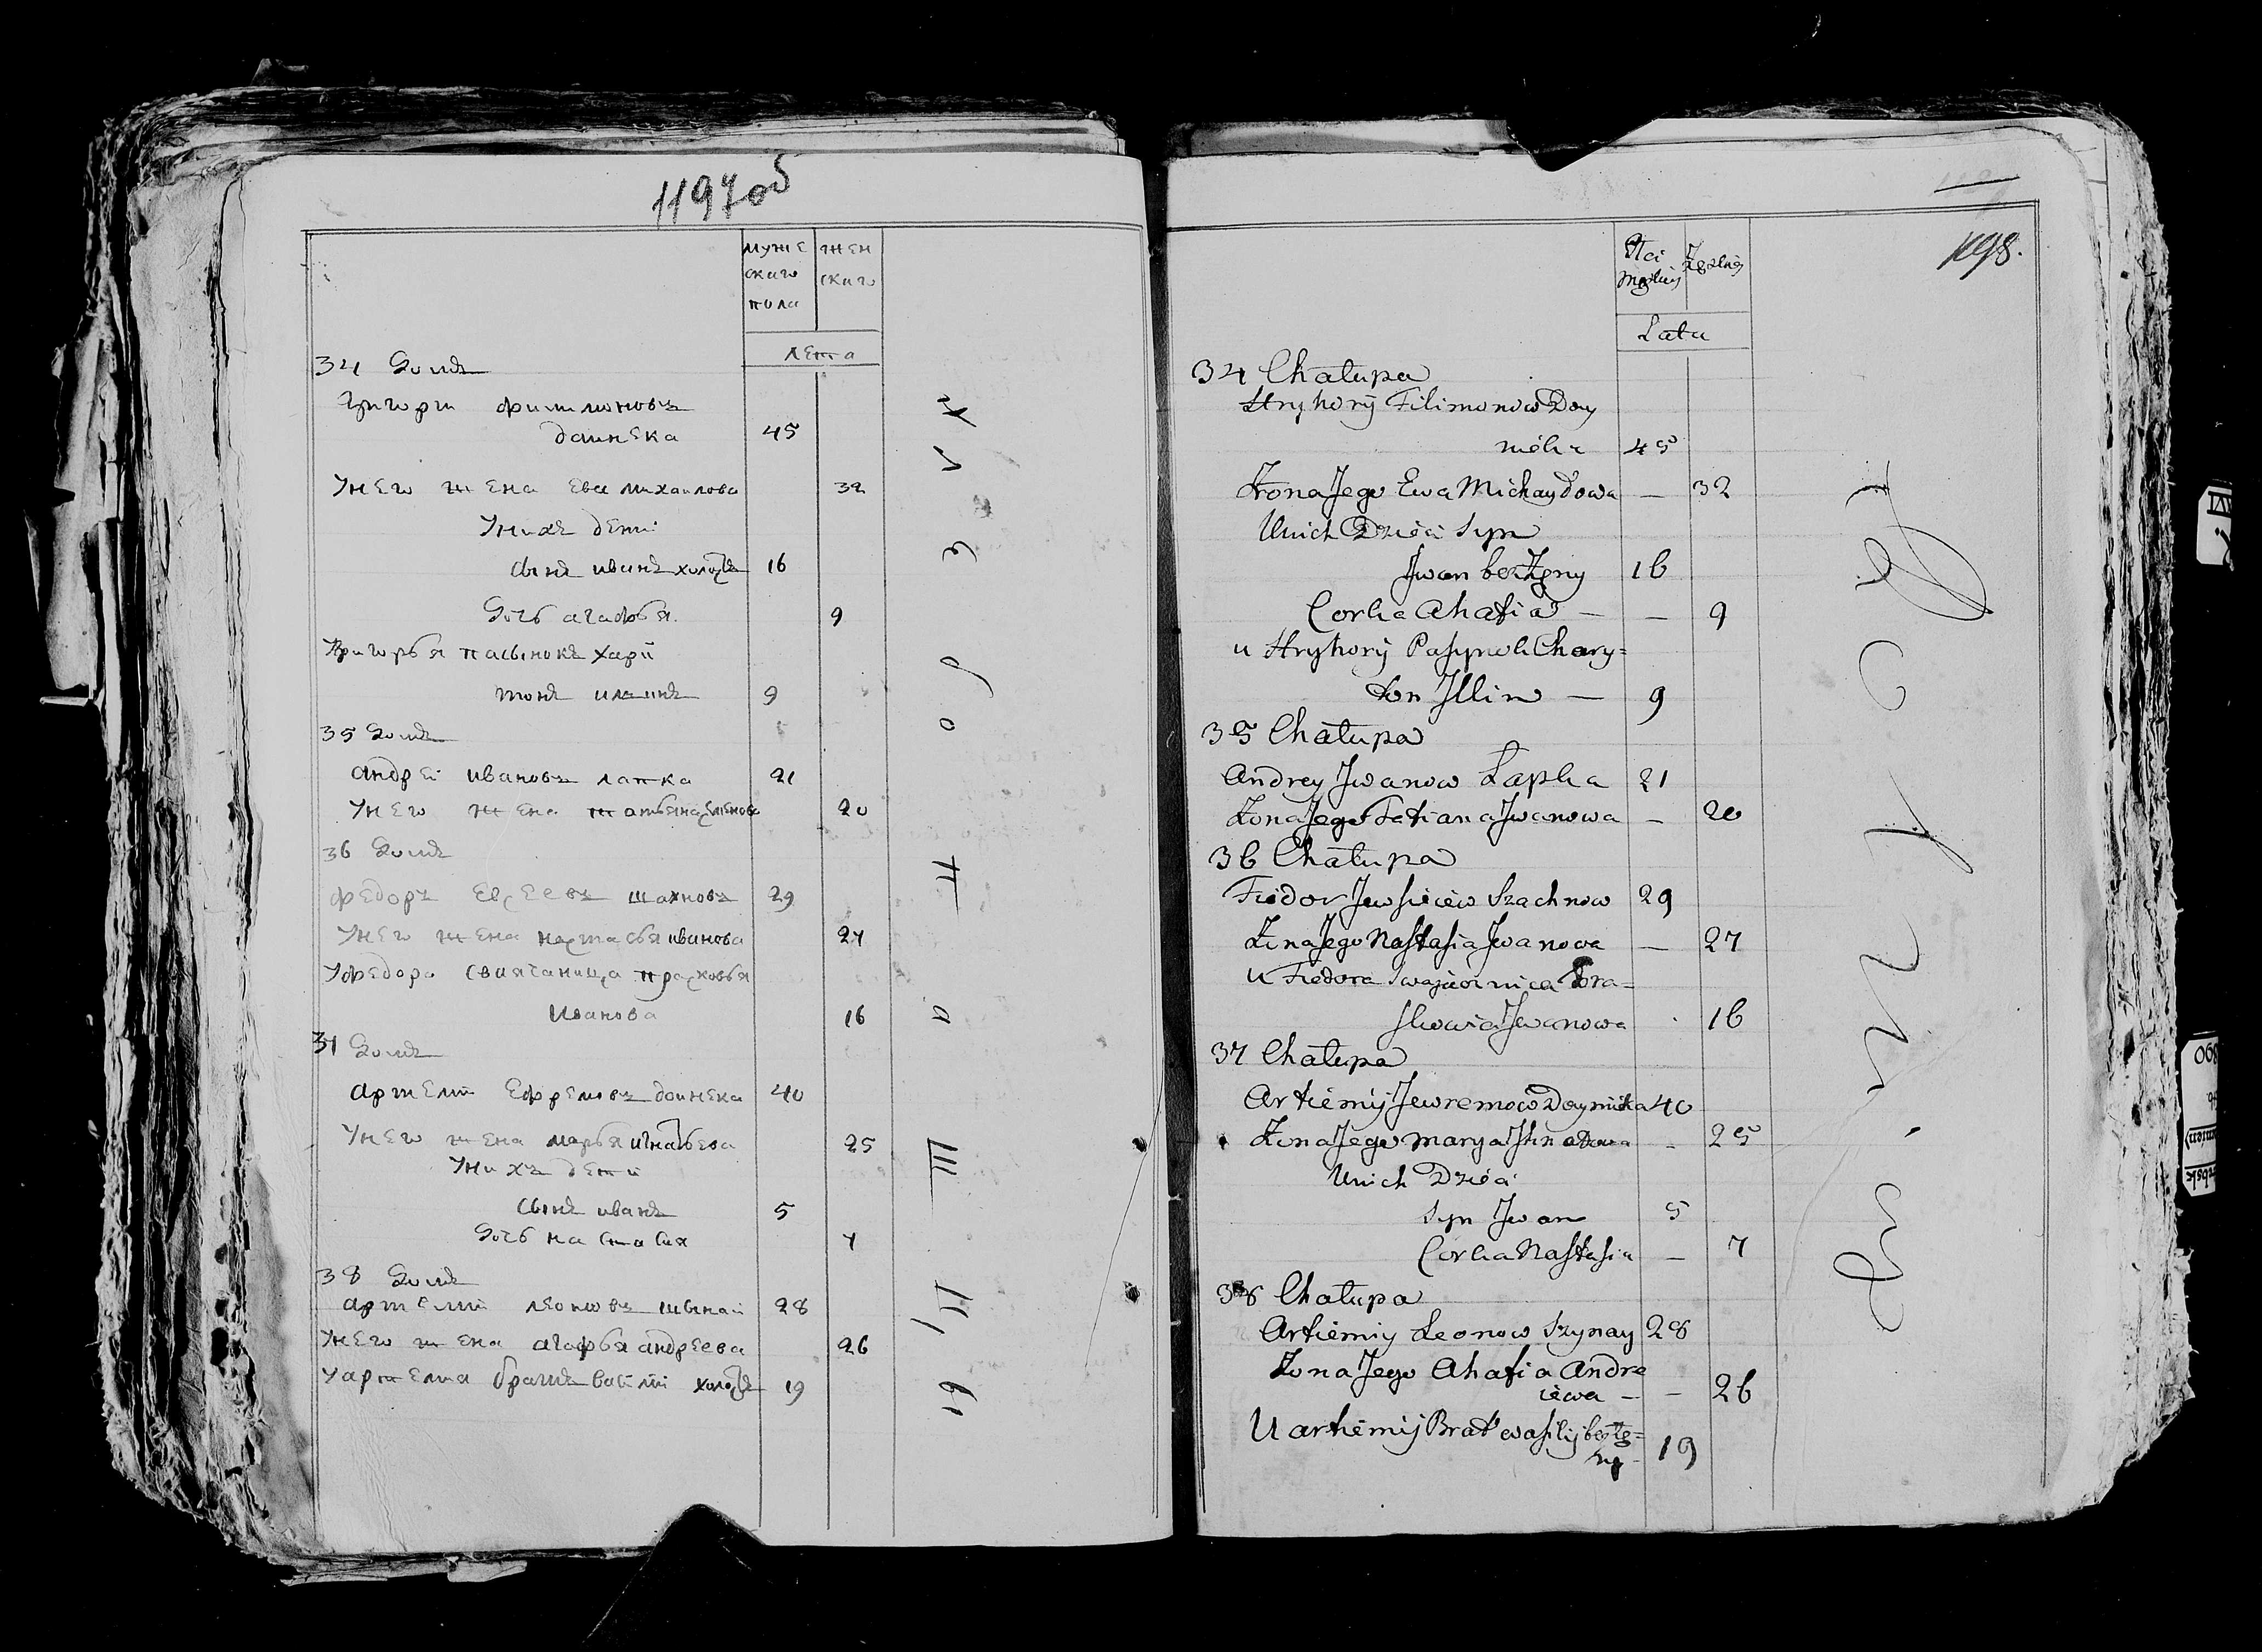 1197об
муже
ского
пола
жен
ского
лета
34 домъ
григори филимоновъ
даинека 45
у него жена ева михаилова 32
у нихъ дети
сынъ иванъ холостъ 16
дочь агафья 9
у григорья пасынокъ хари
тонъ илинъ 9
35 домъ
андреи ивановъ лапка 21
у него жена татьяна 20
36 домъ
федоръ евсеевъ шахновъ 29
у него жена настасья иванова 27
у федора свиячаница прасковья
иванова 16
37 домъ
артеми ефремовъ даинека 40
у него жена марья игнатьева 25
у нихъ дети
сынъ иванъ 5
дочь настасия 7
38 домъ
артеми леоновъ шынаи 28
у него жена агафья андреева 26
у артема братъ васили холостъ 19
1198.
Płci
męskiej
Żeńskiej
Lata
34 Chałupa
Hryhory Filimonow Day
nieka 45
Żona Jego Ewa Michayłowa — 32
U nich Dzieci Syn
Jwan bezżęny 16
Corka Ahafia — — 9
u Hryhory Pasynek Chary=
ton Jllin — 9
35 Chałupa
Andrey Jwanow Łapka 21
Żona Jego Tatiana Jwanowa — 20
36 Chałupa
Fiedor Jewsieiew Szachnow 29
Żona Jego Nastasia Jwanowa — 27
u Fiedora Swajaczenica Pra=
skowia Jwanowa 16
37 Chałupa
Artiemij Jewremow Daynieka 40
Żona Jego Marya Jhnatowa — 25
U nich Dzieci
Syn Jwan 5
Corka Nastasia — 7
38 Chałupa
Artiemiy Leonow Szynay 28
Żona Jego Ahafia Andre
iewa — — 26
U artiemij Brat wasilij bezżę=
ny 19